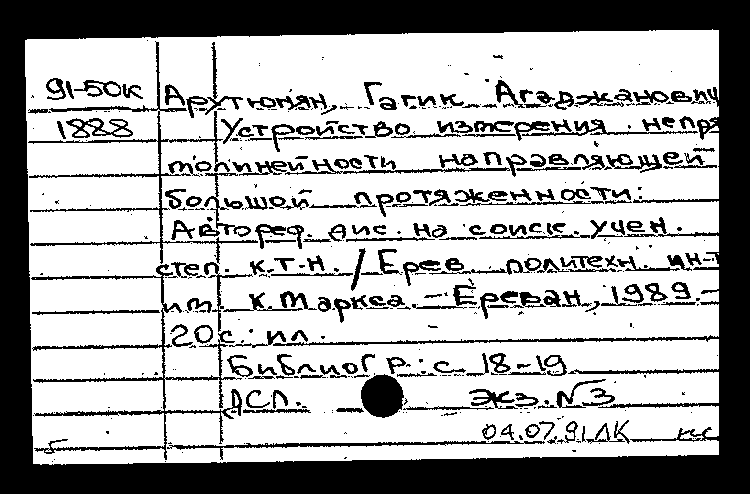 91-50к Арутюнян, Гагик Агаджанович
1888 Устройство измерения непря
молинейности направляющей
большой протяженности:
Автореф. дис. на соиск. учен.
степ. к.т.н. / Ерев. политехн. ин-т
им. К. Маркса. - Ереван, 1989. -
20с.: ил.
Библиогр.: с. 18-19.
ДСП. Экз. №3
04.07.91 ЛК